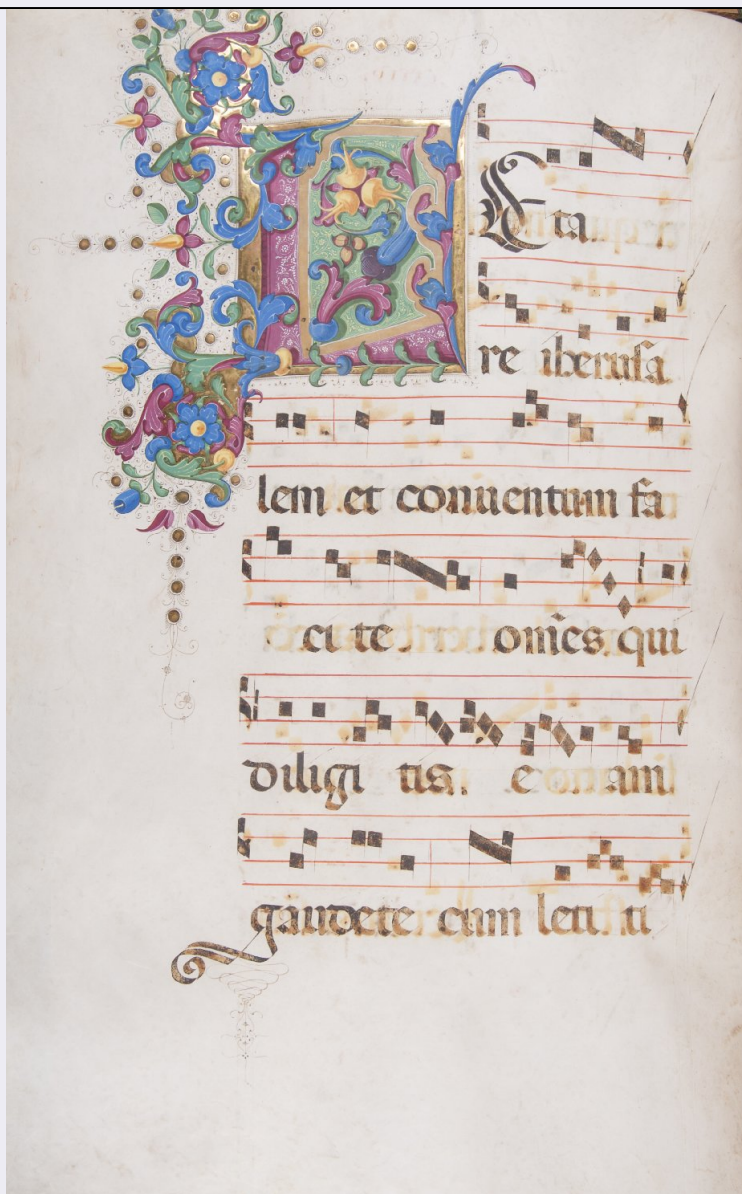 LEta
re iherusa
lem et conuentum fa
cite omēs qui
diligi tis. e am
gaudete cum leti ti